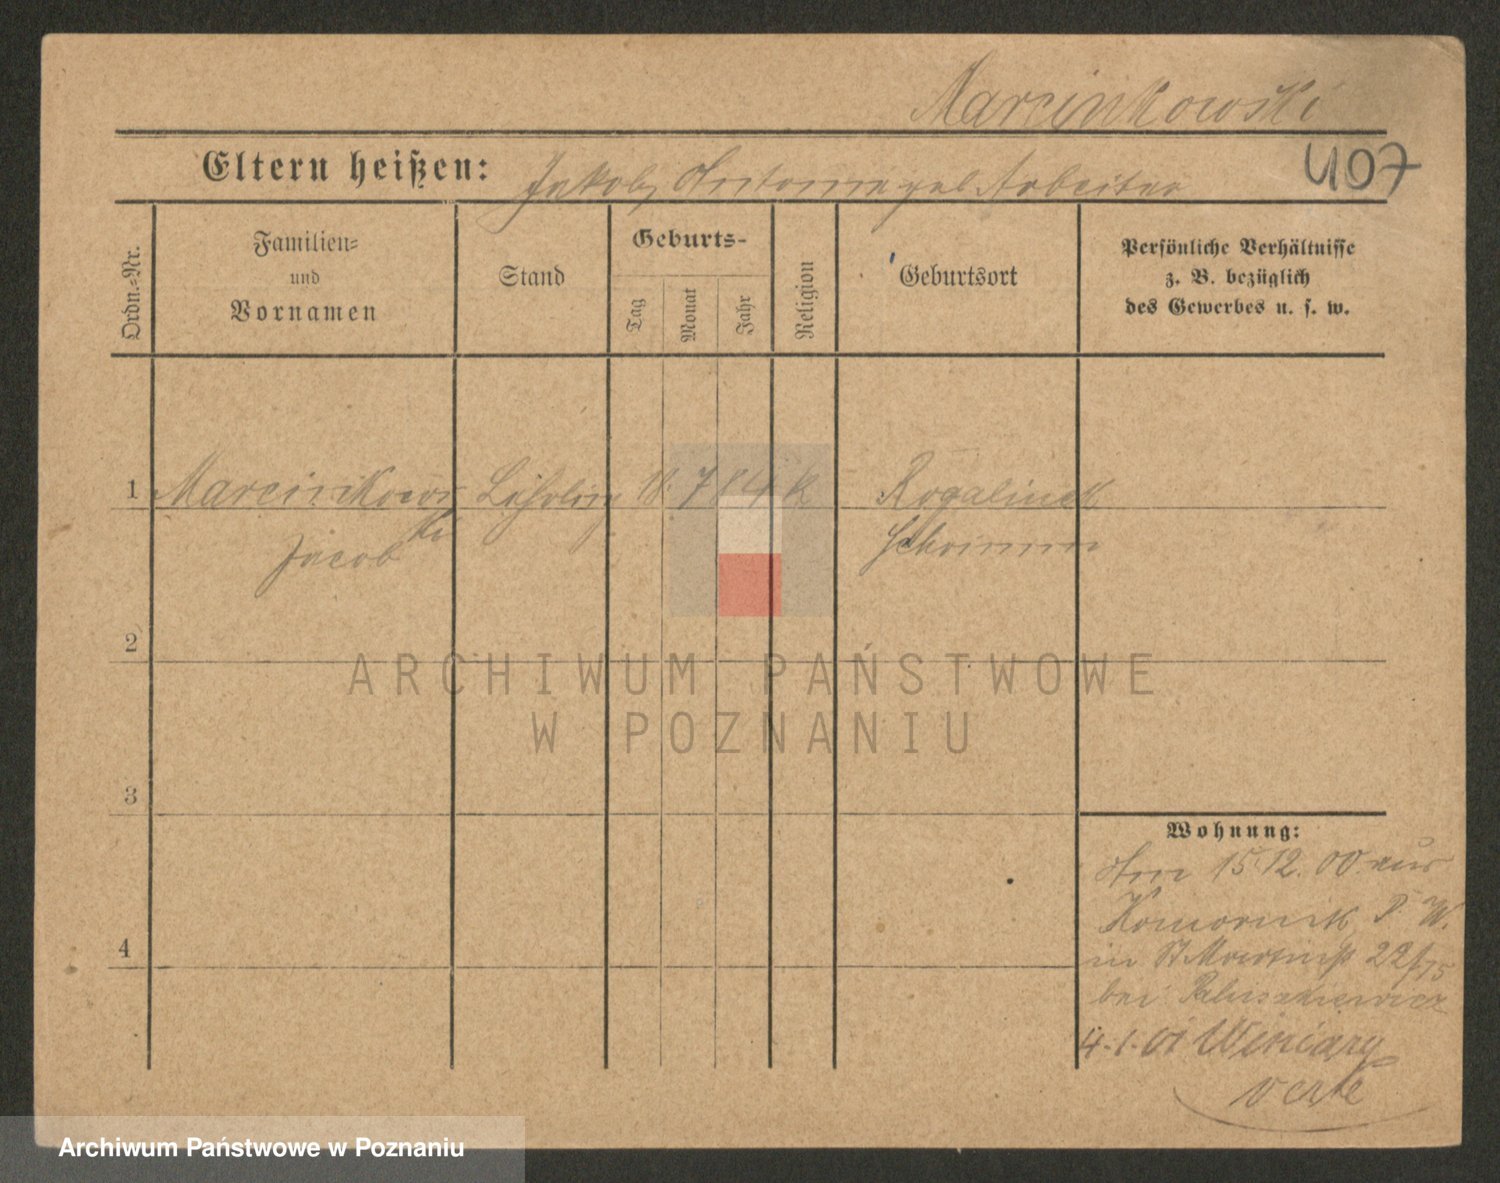 Marcinkowski
Eltern heißen: Jakob, Antonie geb. Arbeiter
407
Ordn.-Nr.
Familien-
und
Vornamen
Stand
Geburts-
Tag
Monat
Jahr
Religion
Geburtsort
Persönliche Verhältnisse
z. B. bezüglich
des Gewerbes u. s. w.
1 Marcinkows Lehrling 18. 7 84 k Rogalinek
ki
Jacob Schrimm
2
ARCHIWUM PAŃSTWOWE
W POZNANIU
3
Wohnung:
Am 15.12.00 aus
Komornik P. W.
4
in St Martinstr 22/75
bei
4.1.01 Winiary
verte
Archiwum Państwowe w Poznaniu